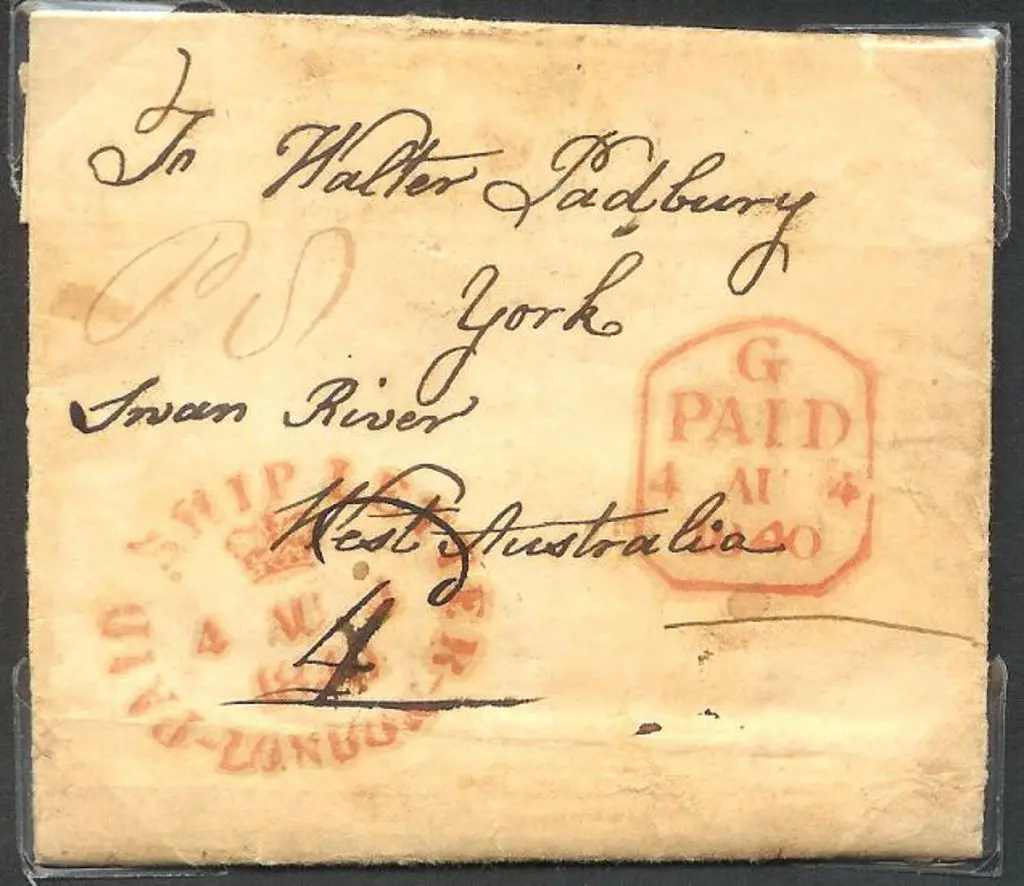 To Walter Padbury
P 8
York
Swan River
West Australia
4
G
PAID
4 AU 4
1840
SHIP LETTER
4 AU
PAID
LONDON